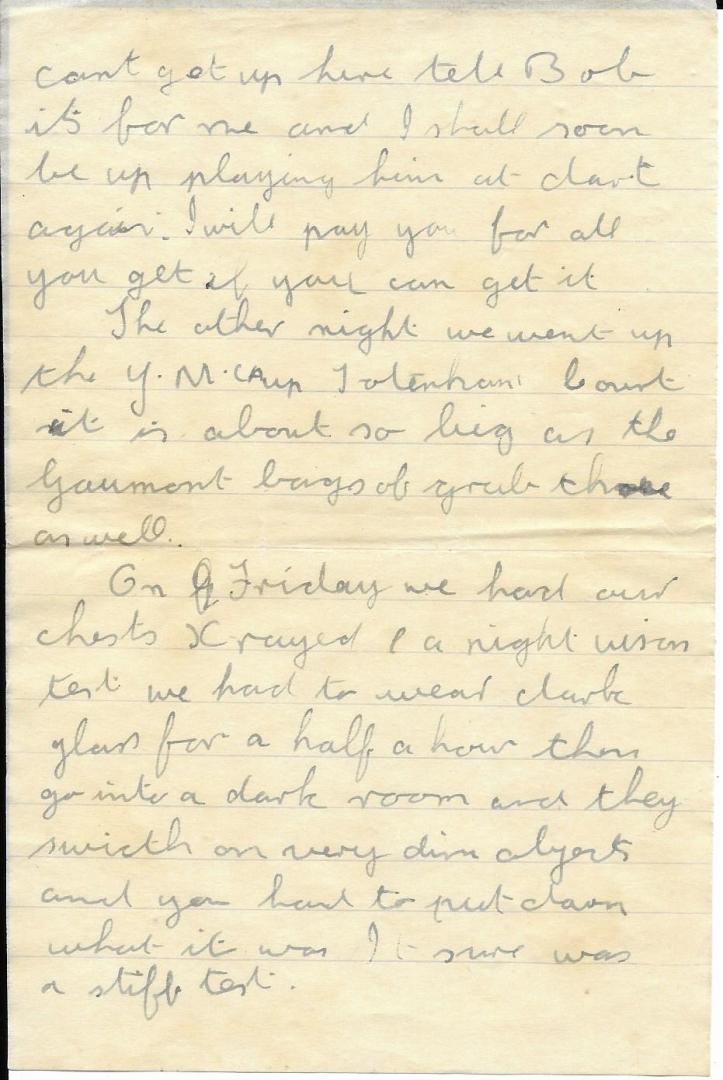 cant get up here tell Bob
its for me and I shall soon
be up playing him at dart
again. I will pay you for all
you get if you can get it
The other night we went up
the Y.M.CA up Totenham Court
it is about so big as the
Gaumont bags of grub there
as well.
On Friday we had our
chests X rayed & a night vison
test we had to wear darke
glass for a half a hour then
go into a dark room and they
swicth on very dim objects
and you had to put down
what it was It sure was
a stiff test.